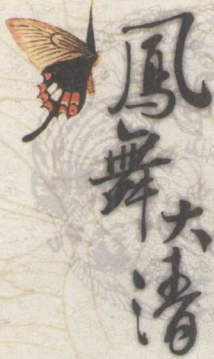 鳳舞大清